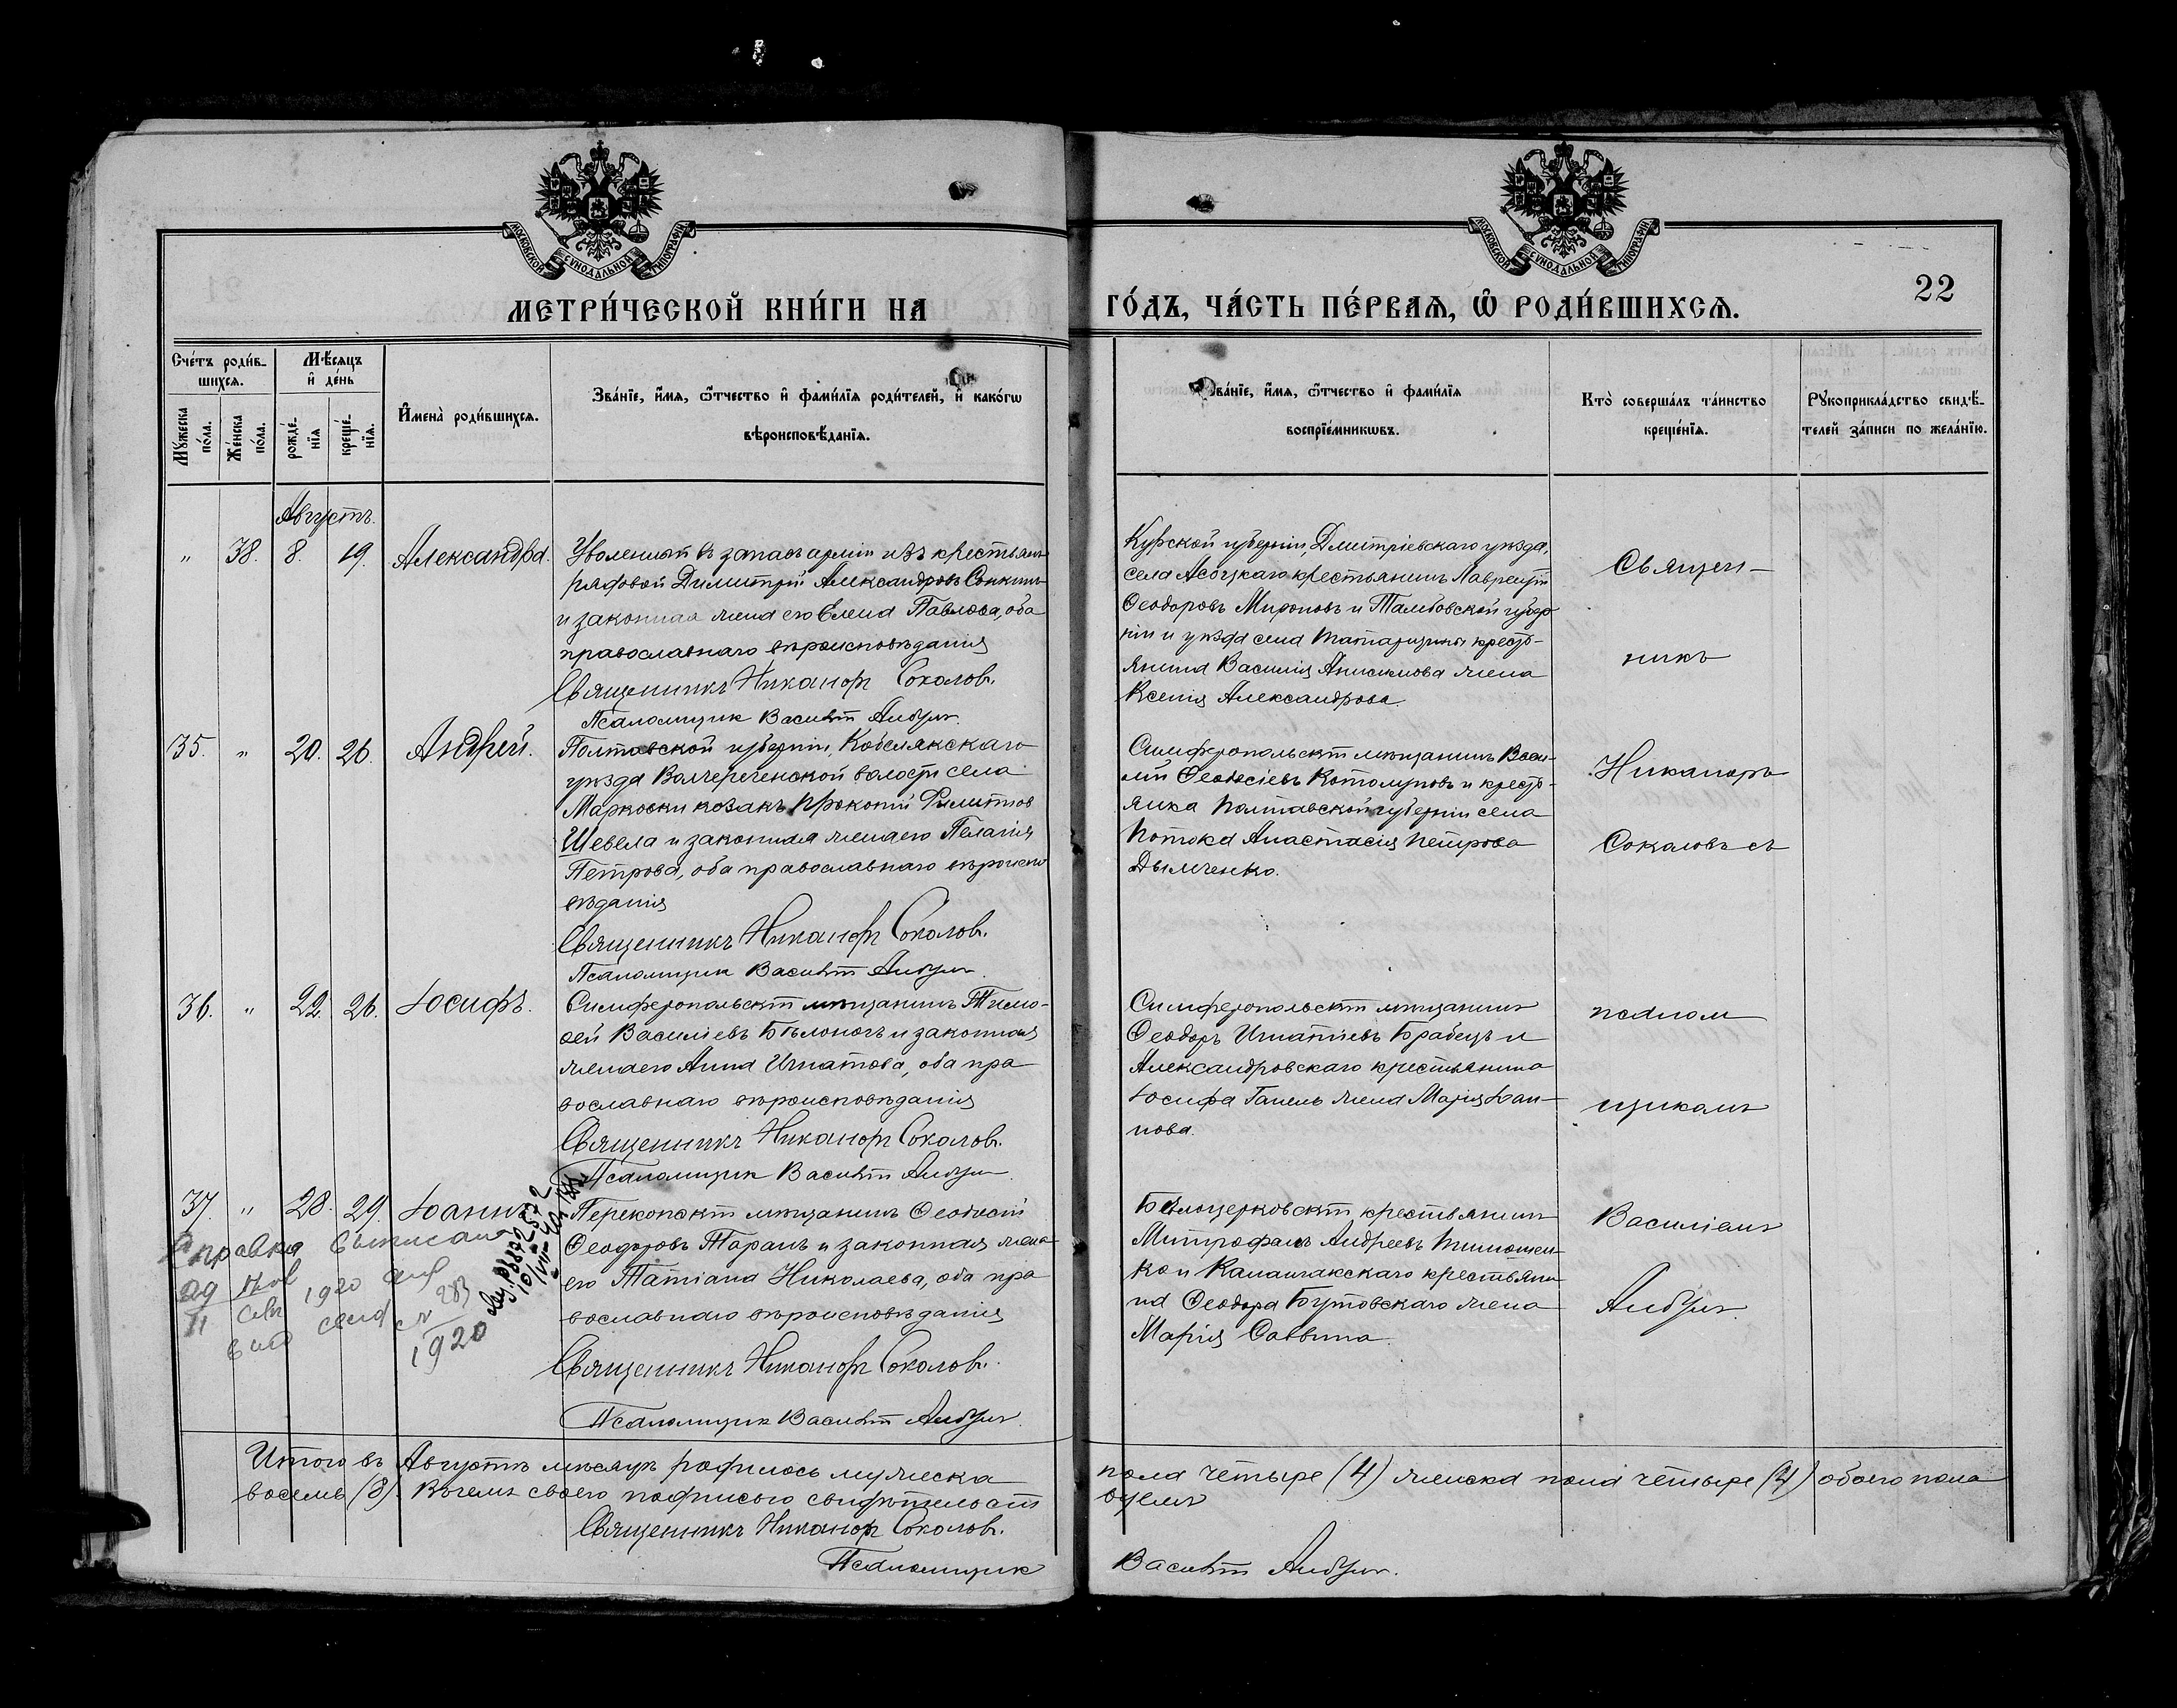 МОСКОВСКОЙ СѴНОДАЛЬНОЙ ТИПОГРАФІИ
МОСКОВСКОЙ СѴНОДАЛЬНОЙ ТИПОГРАФІИ
22
МЕТРИ́ЧЕСКОЙ КНИ́ГИ НА
ГО́ДЪ, ЧА́СТЬ ПЕ́РВАѦ, Ѡ҆ РОДИ́ВШИХСѦ.
Сче́тъ роди́в-
шихсѧ.
Мꙋ́жеска
по́ла.
Же́нска
по́ла.
Мѣ́сѧцъ
и҆ де́нь
рожде́-
нїѧ
креще́-
нїѧ.
И҆мена̀ роди́вшихсѧ.
Зва́нїе, и҆́мѧ, ѻ҆́тчество и҆ фами́лїѧ роди́телей, и҆ како́гѡ
вѣроисповѣ́данїѧ.
Зва́нїе, и҆́мѧ, ѻ҆́тчество и҆ фами́лїѧ
воспрїе́мникѡвъ.
Кто̀ соверша́лъ та́инство
креще́нїѧ.
Рꙋкоприкла́дство свидѣ́-
телей за́писи по жела́нїю.
Августъ.
" 38. 8. 19. Александра.
Уволенный въ запасъ арміи изъ крестьянъ
рядовой Димитрій Александровъ Сонкинъ
и законная жена его Елена Павлова, оба
православнаго вѣроисповѣданія
Священникъ Никаноръ Соколовъ.
Псаломщик Василій
Курской губерніи, Дмитріевскаго уѣзда,
села крестьянинъ Лаврентій
Ѳеодоровъ Мироновъ и Тамбовской губер
ніи и уѣзда села крестъ-
янина Василія Анисимова жена
Ксенія Александрова.
Священ-
никъ
35. " 20. 26. Андрей.
Полтавской губерніи, Кобелякскаго
уѣзда волости села
Марковки козакъ Прокопій Филиппов
Шевела и законная жена его Пелагія
Петрова, оба православнаго вѣроиспо
вѣданія
Священникъ Никаноръ Соколовъ.
Псаломщик Василій
Симферопольскій мѣщанинъ Васи-
лій Ѳеодосіевъ и крестъ-
янка Полтавской губерніи села
Потока Анастасія Петрова
Дымченко.
Никаноръ
Соколовъ съ
36. " 22. 26. Іосифъ.
Симферопольскій мѣщанинъ Тимо-
ѳей Василіевъ Бѣлоногъ и законная
жена его Анна Игнатова, оба пра
вославнаго вѣроисповѣданія
Священникъ Никаноръ Соколовъ.
Псаломщик Василій
Симферопольскій мѣщанинъ
Ѳеодоръ Игнатіевъ Брабецъ и
Александровскаго крестьянина
Іосифа жена Марія Іоан-
нова.
псалом
щикомъ
37. " 28. 29. Іоаннъ
Перекопскій мѣщанинъ Ѳеодосій
Ѳеодоровъ Таранъ и законная жена
его Татіана Николаева, оба пра
вославнаго вѣроисповѣданія
Священникъ Никаноръ Соколовъ.
Псаломщик Василій
Справка выписана
1920
1920
Бѣлоцерковскій крестьянинъ
Митрофанъ Андреевъ Тимошен-
ко и Каланчакскаго крестьяни
на Ѳеодора Бутовскаго жена
Марія Саввина.
Василіемъ
Итого въ Августѣ мѣсяцѣ родилось мужеска
пола четыре (4) женска пола четыре (4) обоего пола
восемь (8). Въ чемъ своею подписью свидѣтельст
вуемъ
Священникъ Никаноръ Соколовъ.
Псаломщик
Василій